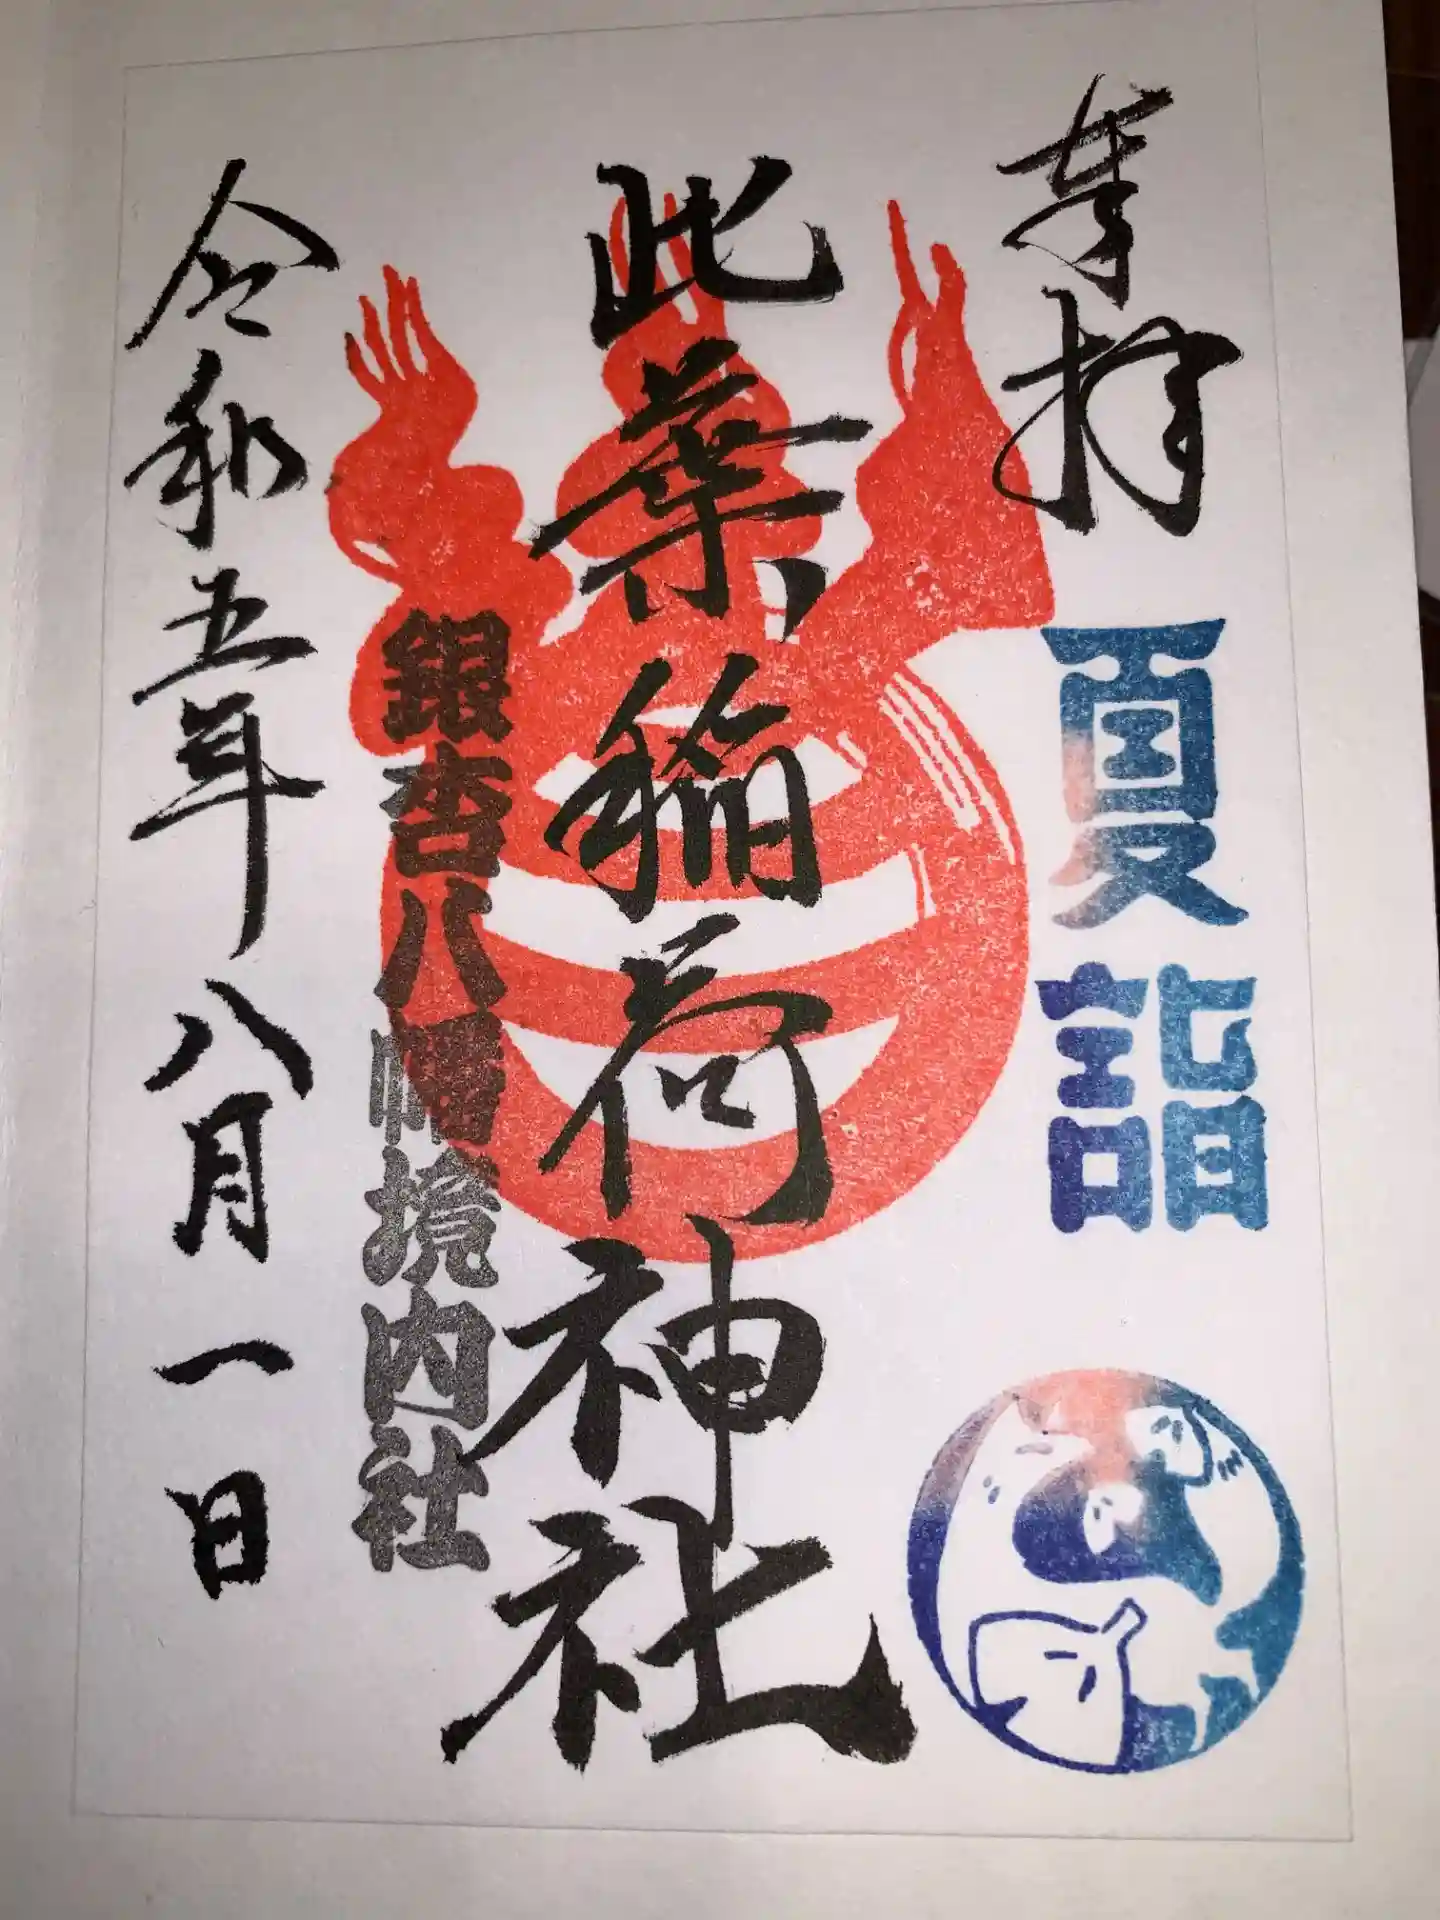 奉拝
夏詣
此葉稲荷神社
銀杏八幡境内社
令和五年八月一日